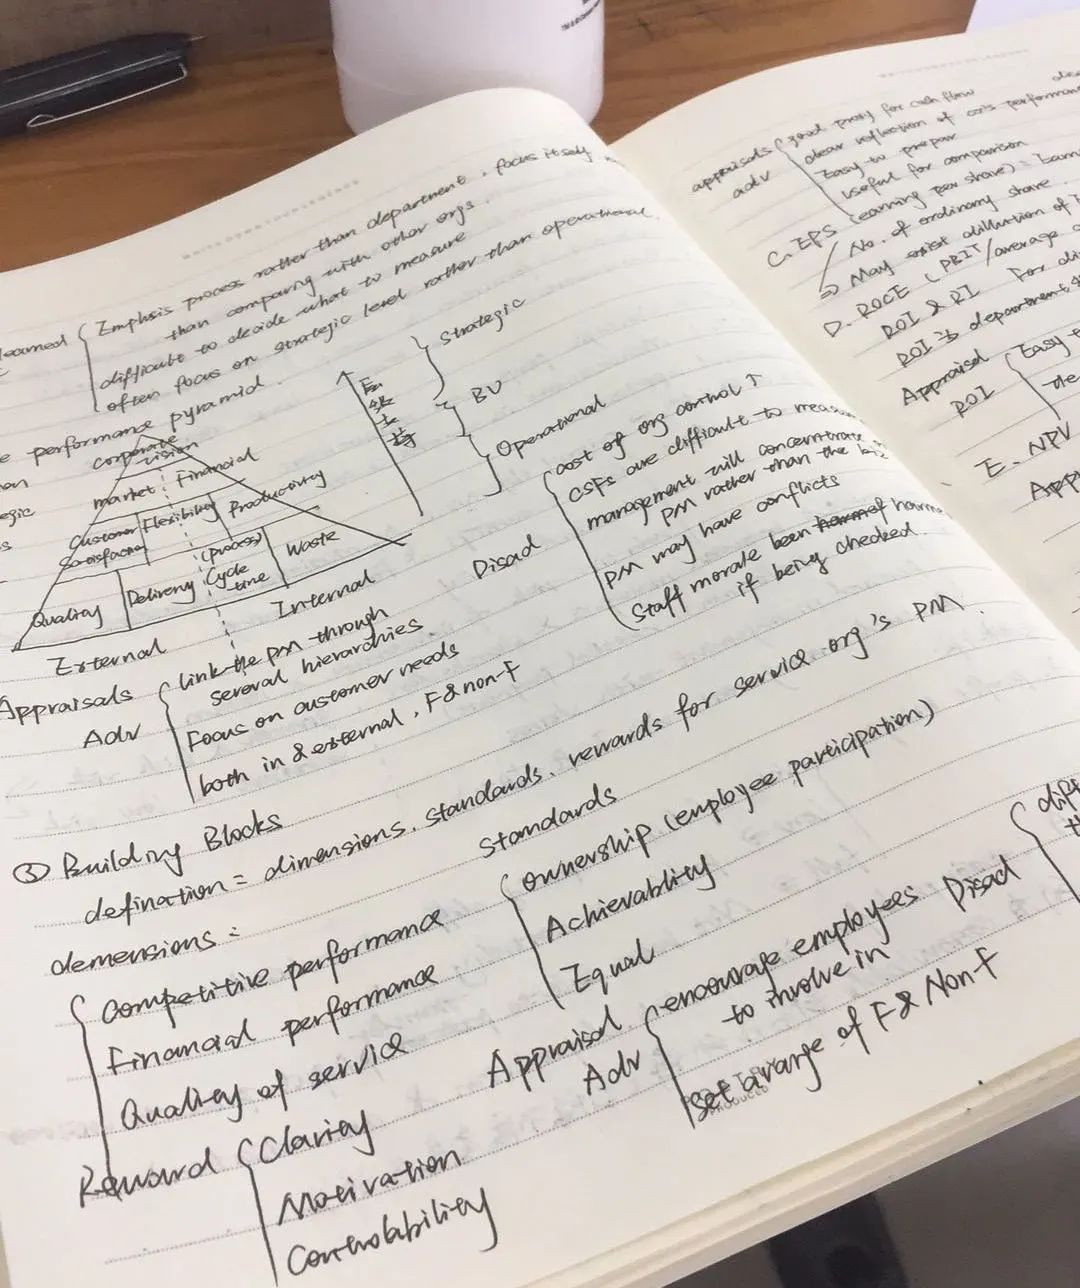 Emphsis process rather than department, focus itself
than comparing with other orgs.
learned
difficult to decide what to measure
often focus on strategic level rather than operational.
performance pyramid.
corporate
vision
market Financial
Customer Flexibility Productivity
Satisfaction
Quality Delivery (process) Waste
Cycle
time
External Internal
Strategic
BU
Operational
Appraisals
Adv
link the pm through
several hierarchies.
Focus on customer needs
both in & external, F & non-F
Disad
cost of org control ↑
CSFs are difficult to measure
management will concentrate
PM rather than the
PM may have conflicts
Staff morale been harm
if being checked.
③ Building Blocks
defination = dimensions. standards. rewards for service org's PM.
demensions:
Competitive performance
Financial performance
Quality of service
Standards
ownership (employee participation)
Achievablity
Equal
Reward
Clarity
Motivation
Controlability
Appraisal
Adv
encourage employees
to involve in
set a range of F & Non-F
Disad
appraisals
adv
good proxy for cash flow
clear reflection of performan
Easy to prepar
useful for comparison
C. EPS (earning per share) =
No. of ordinary share.
⇒ May exist dillution of
D. ROCE (PBIT/average
ROI & RI For di
ROI is department
Appraisal
ROI
Easy t
E. NPV
App